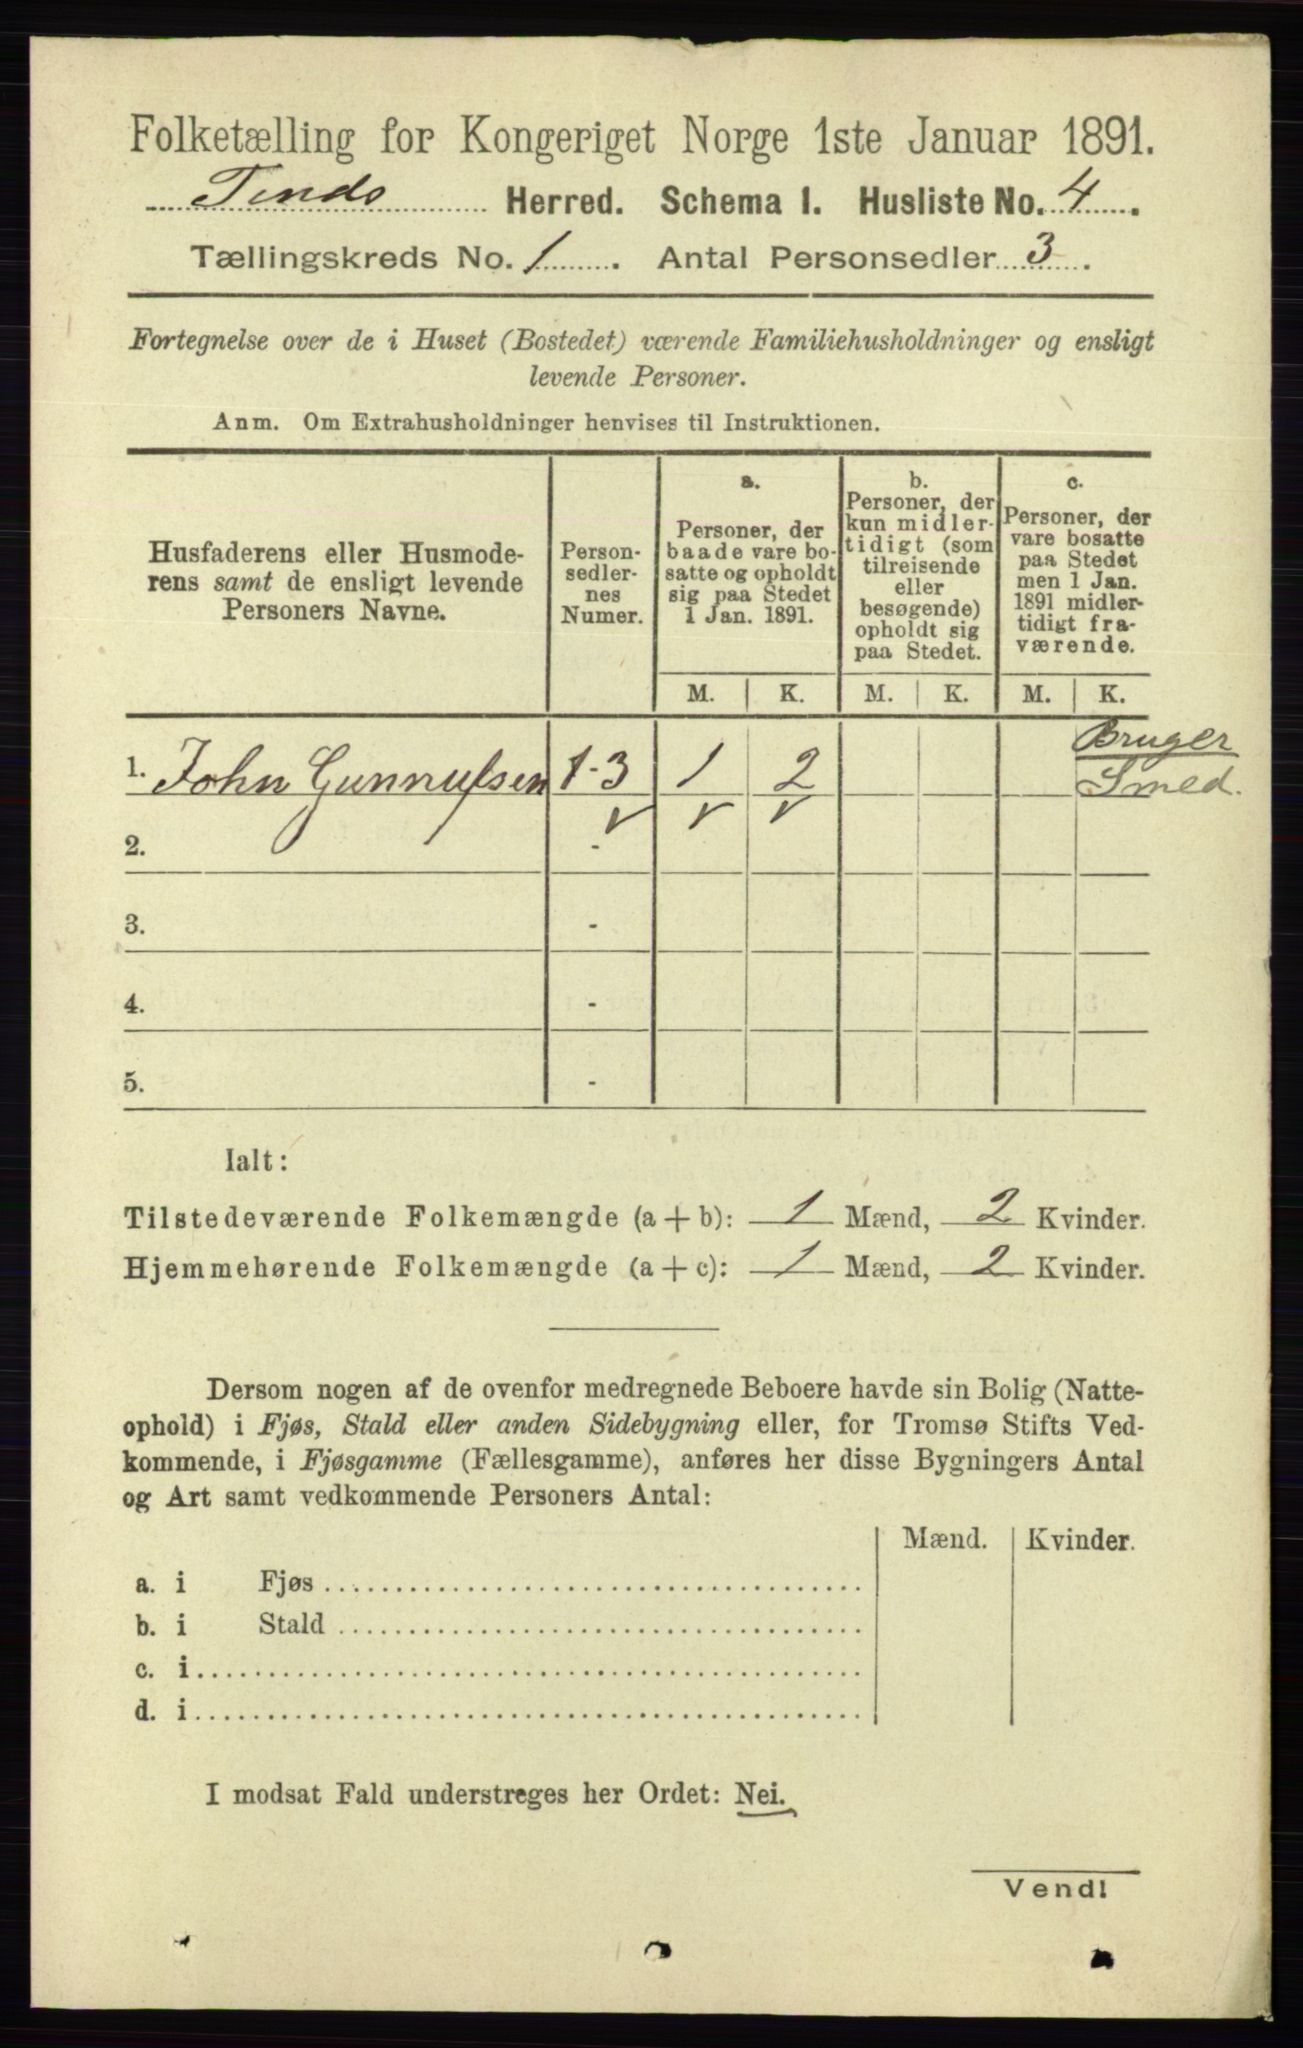 Folketælling for Kongeriget Norge 1ste Januar 1891.
Tinds Herred. Schema I. Husliste No. 4.
Tællingskreds No. 1. Antal Personsedler 3.
Fortegnelse over de i Huset (Bostedet) værende Familiehusholdninger og ensligt
levende Personer.
Anm. Om Extrahusholdninger henvises til Instruktionen.
Husfaderens eller Husmode-
rens samt de ensligt levende
Personers Navne.
Person-
sedler-
nes
Numer.
a.
Personer, der
baade vare bo-
satte og opholdt
sig paa Stedet
1 Jan. 1891.
b.
Personer, der
kun midler-
tidigt (som
tilreisende
eller
besøgende)
opholdt sig
paa Stedet.
c.
Personer, der
vare bosatte
paa Stedet
men 1 Jan.
1891 midler-
tidigt fra-
værende.
M. K. M. K. M. K.
1. John Gunnulfsen 1-3 1 2 Bruger
Smed.
2. -
3. -
4. -
5. -
Ialt:
Tilstedeværende Folkemængde (a+b): 1 Mænd, 2 Kvinder.
Hjemmehørende Folkemængde (a+c): 1 Mænd, 2 Kvinder.
Dersom nogen af de ovenfor medregnede Beboere havde sin Bolig (Natte-
ophold) i Fjøs, Stald eller anden Sidebygning eller, for Tromsø Stifts Ved-
kommende, i Fjøsgamme (Fællesgamme), anføres her disse Bygningers Antal
og Art samt vedkommende Personers Antal:
Mænd. Kvinder.
a. i Fjøs
b. i Stald
c. i
d. i
I modsat Fald understreges her Ordet: Nei.
Vend!